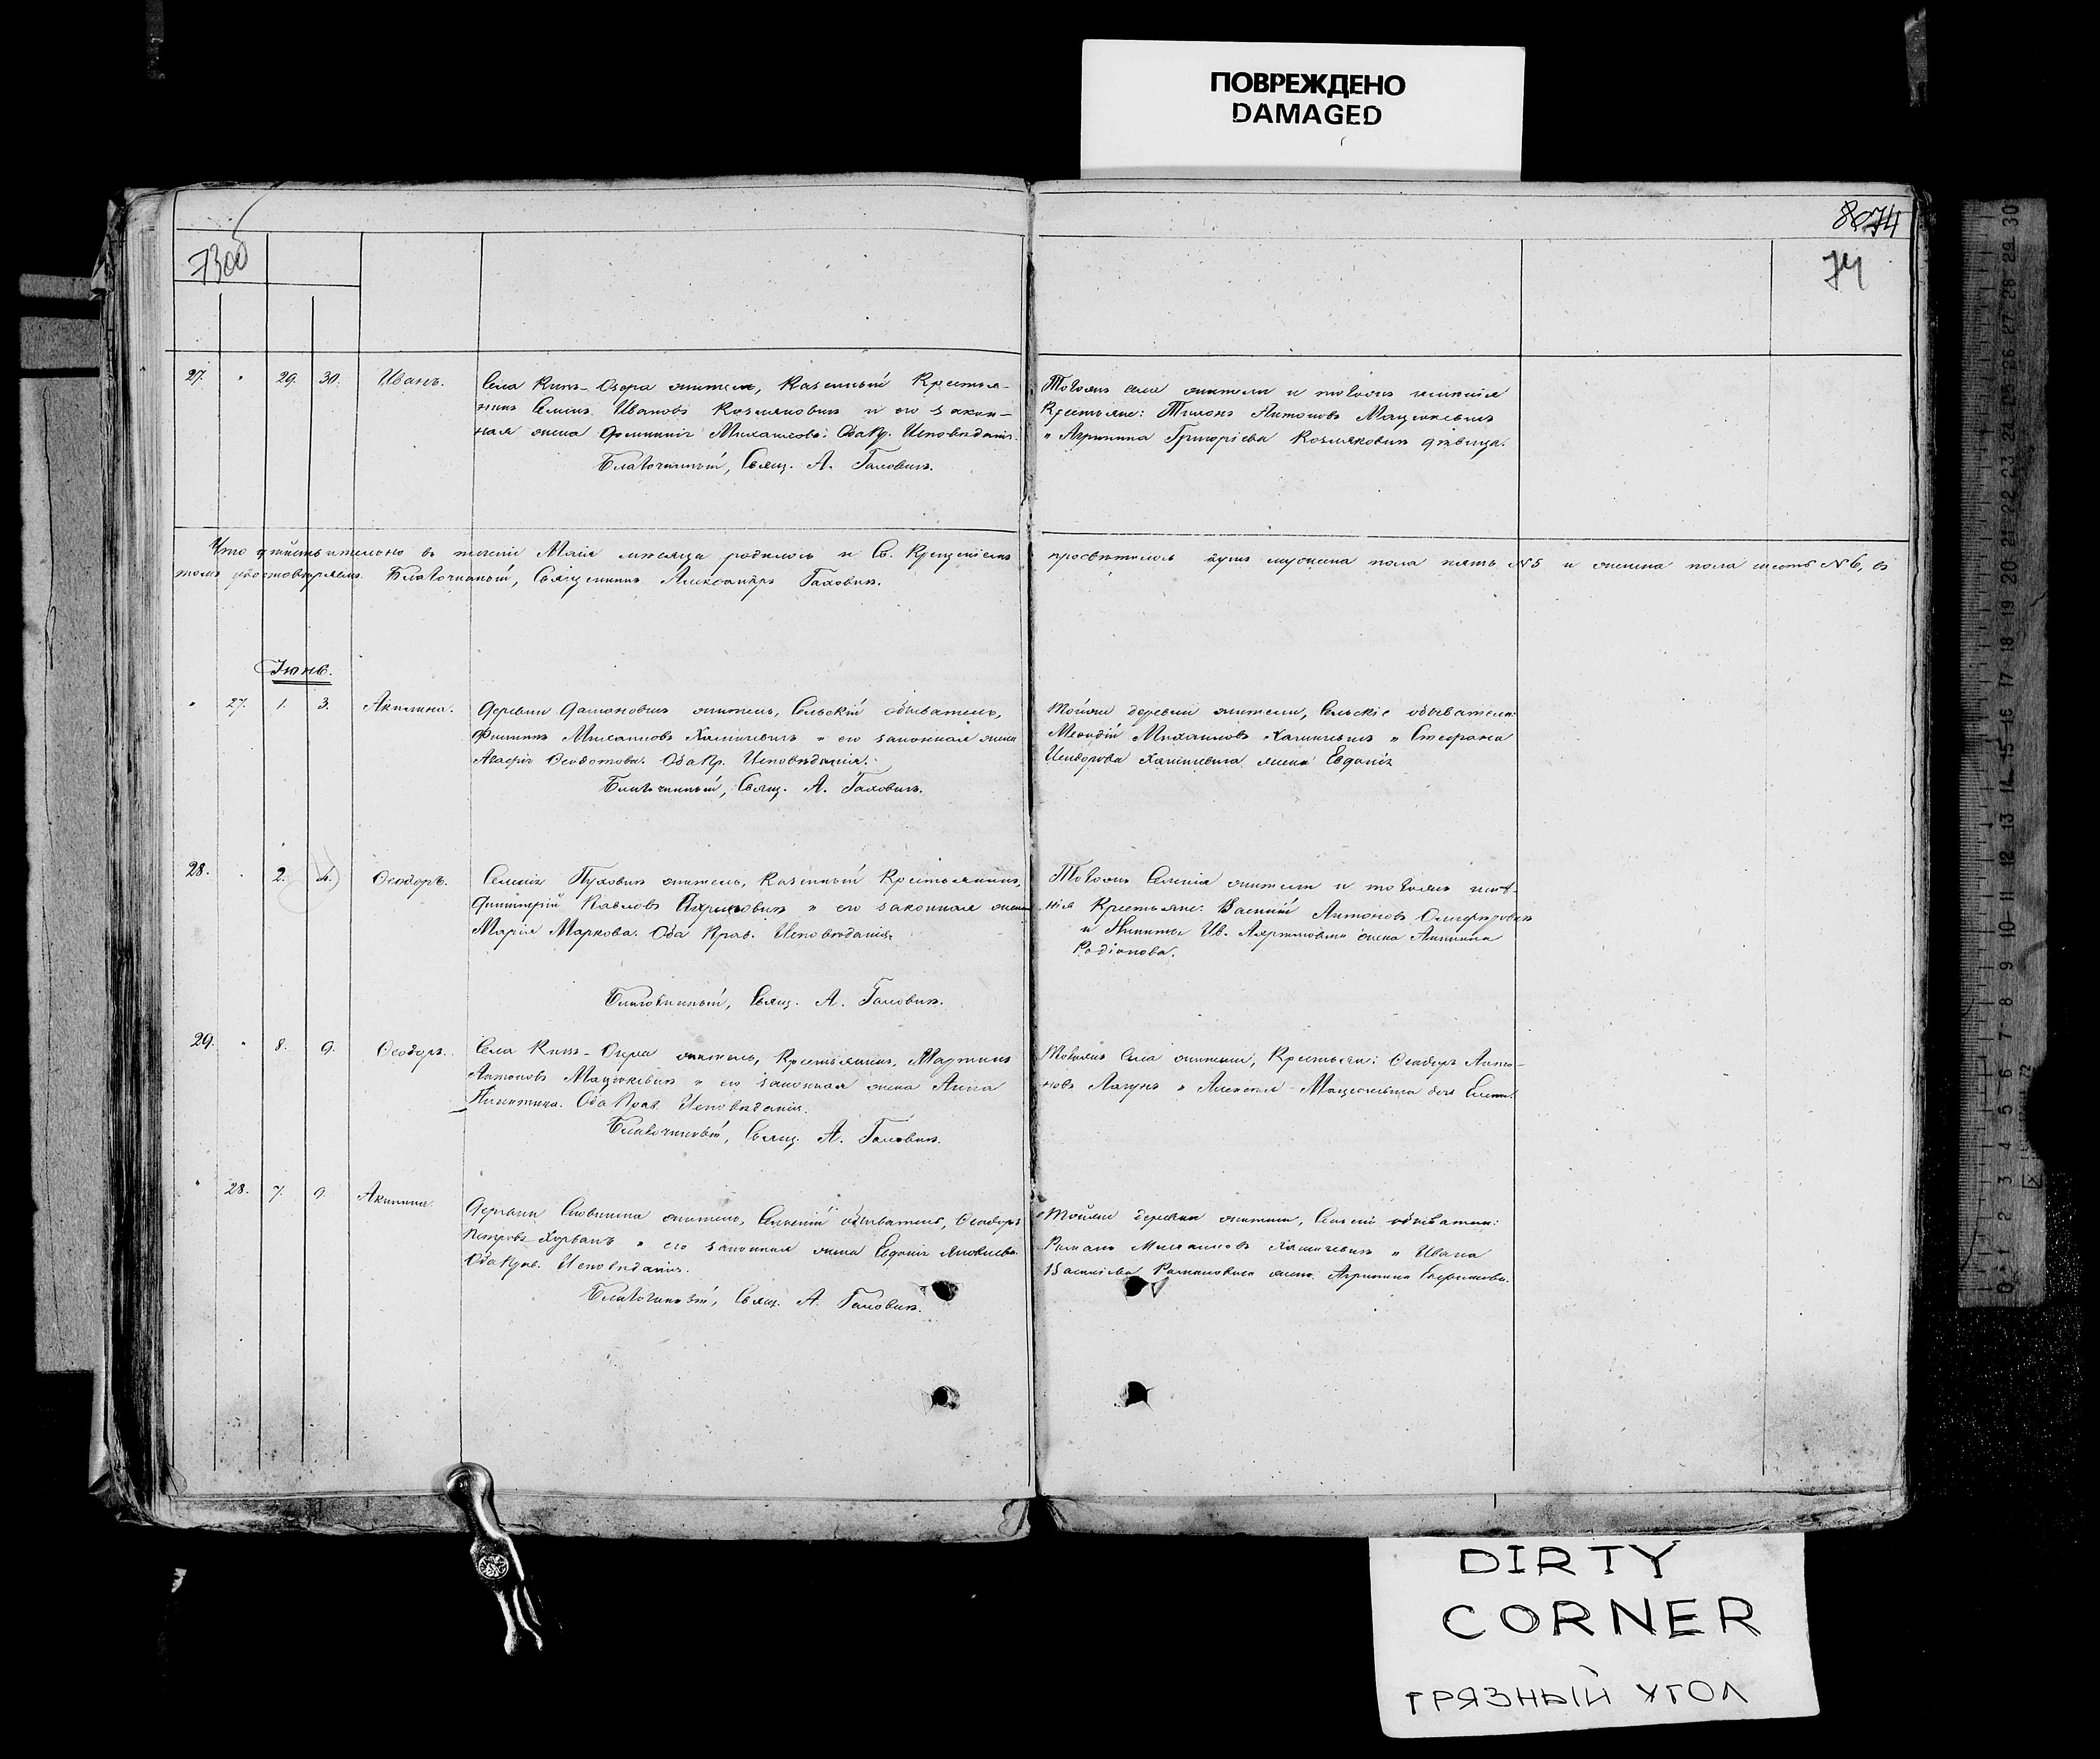 ПОВРЕЖДЕНО
DAMAGED
74
730б
74
27. " 29. 30. Иванъ.
Села Князь-Озера житель, Казенный Крестья-
нинъ Семенъ Ивановъ Козляковичъ и его закон-
ная жена Михайлова. Оба Пр. Исповѣданія.
Благочинный, Свящ. А. Галовичъ.
Тогожъ села жители и тогожъ имѣнія
Крестьяне: Антоновъ Мацукевичъ
и Агрипина Григорієва Козляковичъ дѣвица.
Что дѣйствительно въ теченіе Маія мѣсяца родилось и Св. Крещеніемъ
просвѣтилось душъ мужеска пола пять №5 и женска пола шесть №6, въ
томъ удостовѣряемъ. Благочинный, Священникъ Александръ Галовичъ.
Іюнь.
" 27. 1. 3. Акилина.
Деревни житель, Сельскій обыватель,
Филипъ Михайловъ и его законная жена
Агафія Ѳеодотова. Оба Пр. Исповѣданія.
Благочинный, Свящ. А. Галовичъ.
Тойже деревни жители, Сельскіе обыватели:
Михайловъ и Стефана
жена Евдокія
28. " 2. 4. Ѳеодоръ.
Селенія Пуховичъ житель, Казенный Крестьянинъ,
Павловъ и его законная жена
Марія Маркова. Оба Прав. Исповѣданія.
Благочинный, Свящ. А. Галовичъ.
Тогожъ Селенія жители и тогожъ имѣ-
нія Крестьяне: Василій Антоновъ
и Никиты Ив. жена
Родіонова.
29. " 8. 9. Ѳеодоръ.
Села Князь-Озера житель, Крестьянинъ, Мартинъ
Антоновъ Мацукевичъ и его законная жена Анна
Никитина. Оба Прав. Исповѣданія.
Благочинный, Свящ. А. Галовичъ.
Тогожъ Села жители, Крестьяне: Ѳеодоръ Анто-
новъ Лагунъ и Алексѣя Мацукевича дочь Елена.
" 28. 7. 9. Акилина.
Деревни житель, Сельскій обыватель, Ѳеодоръ
Петровъ Курбанъ и его законная жена Евдокія Яковлева.
Оба Прав. Исповѣданія.
Благочинный, Свящ. А. Галовичъ.
Тойже деревни жители, Сельскіе обыватели:
Романъ Михайловъ и Ивана
Васильева Романовича жена Агрипина
DIRTY
CORNER
ГРЯЗНЫЙ УГОЛ